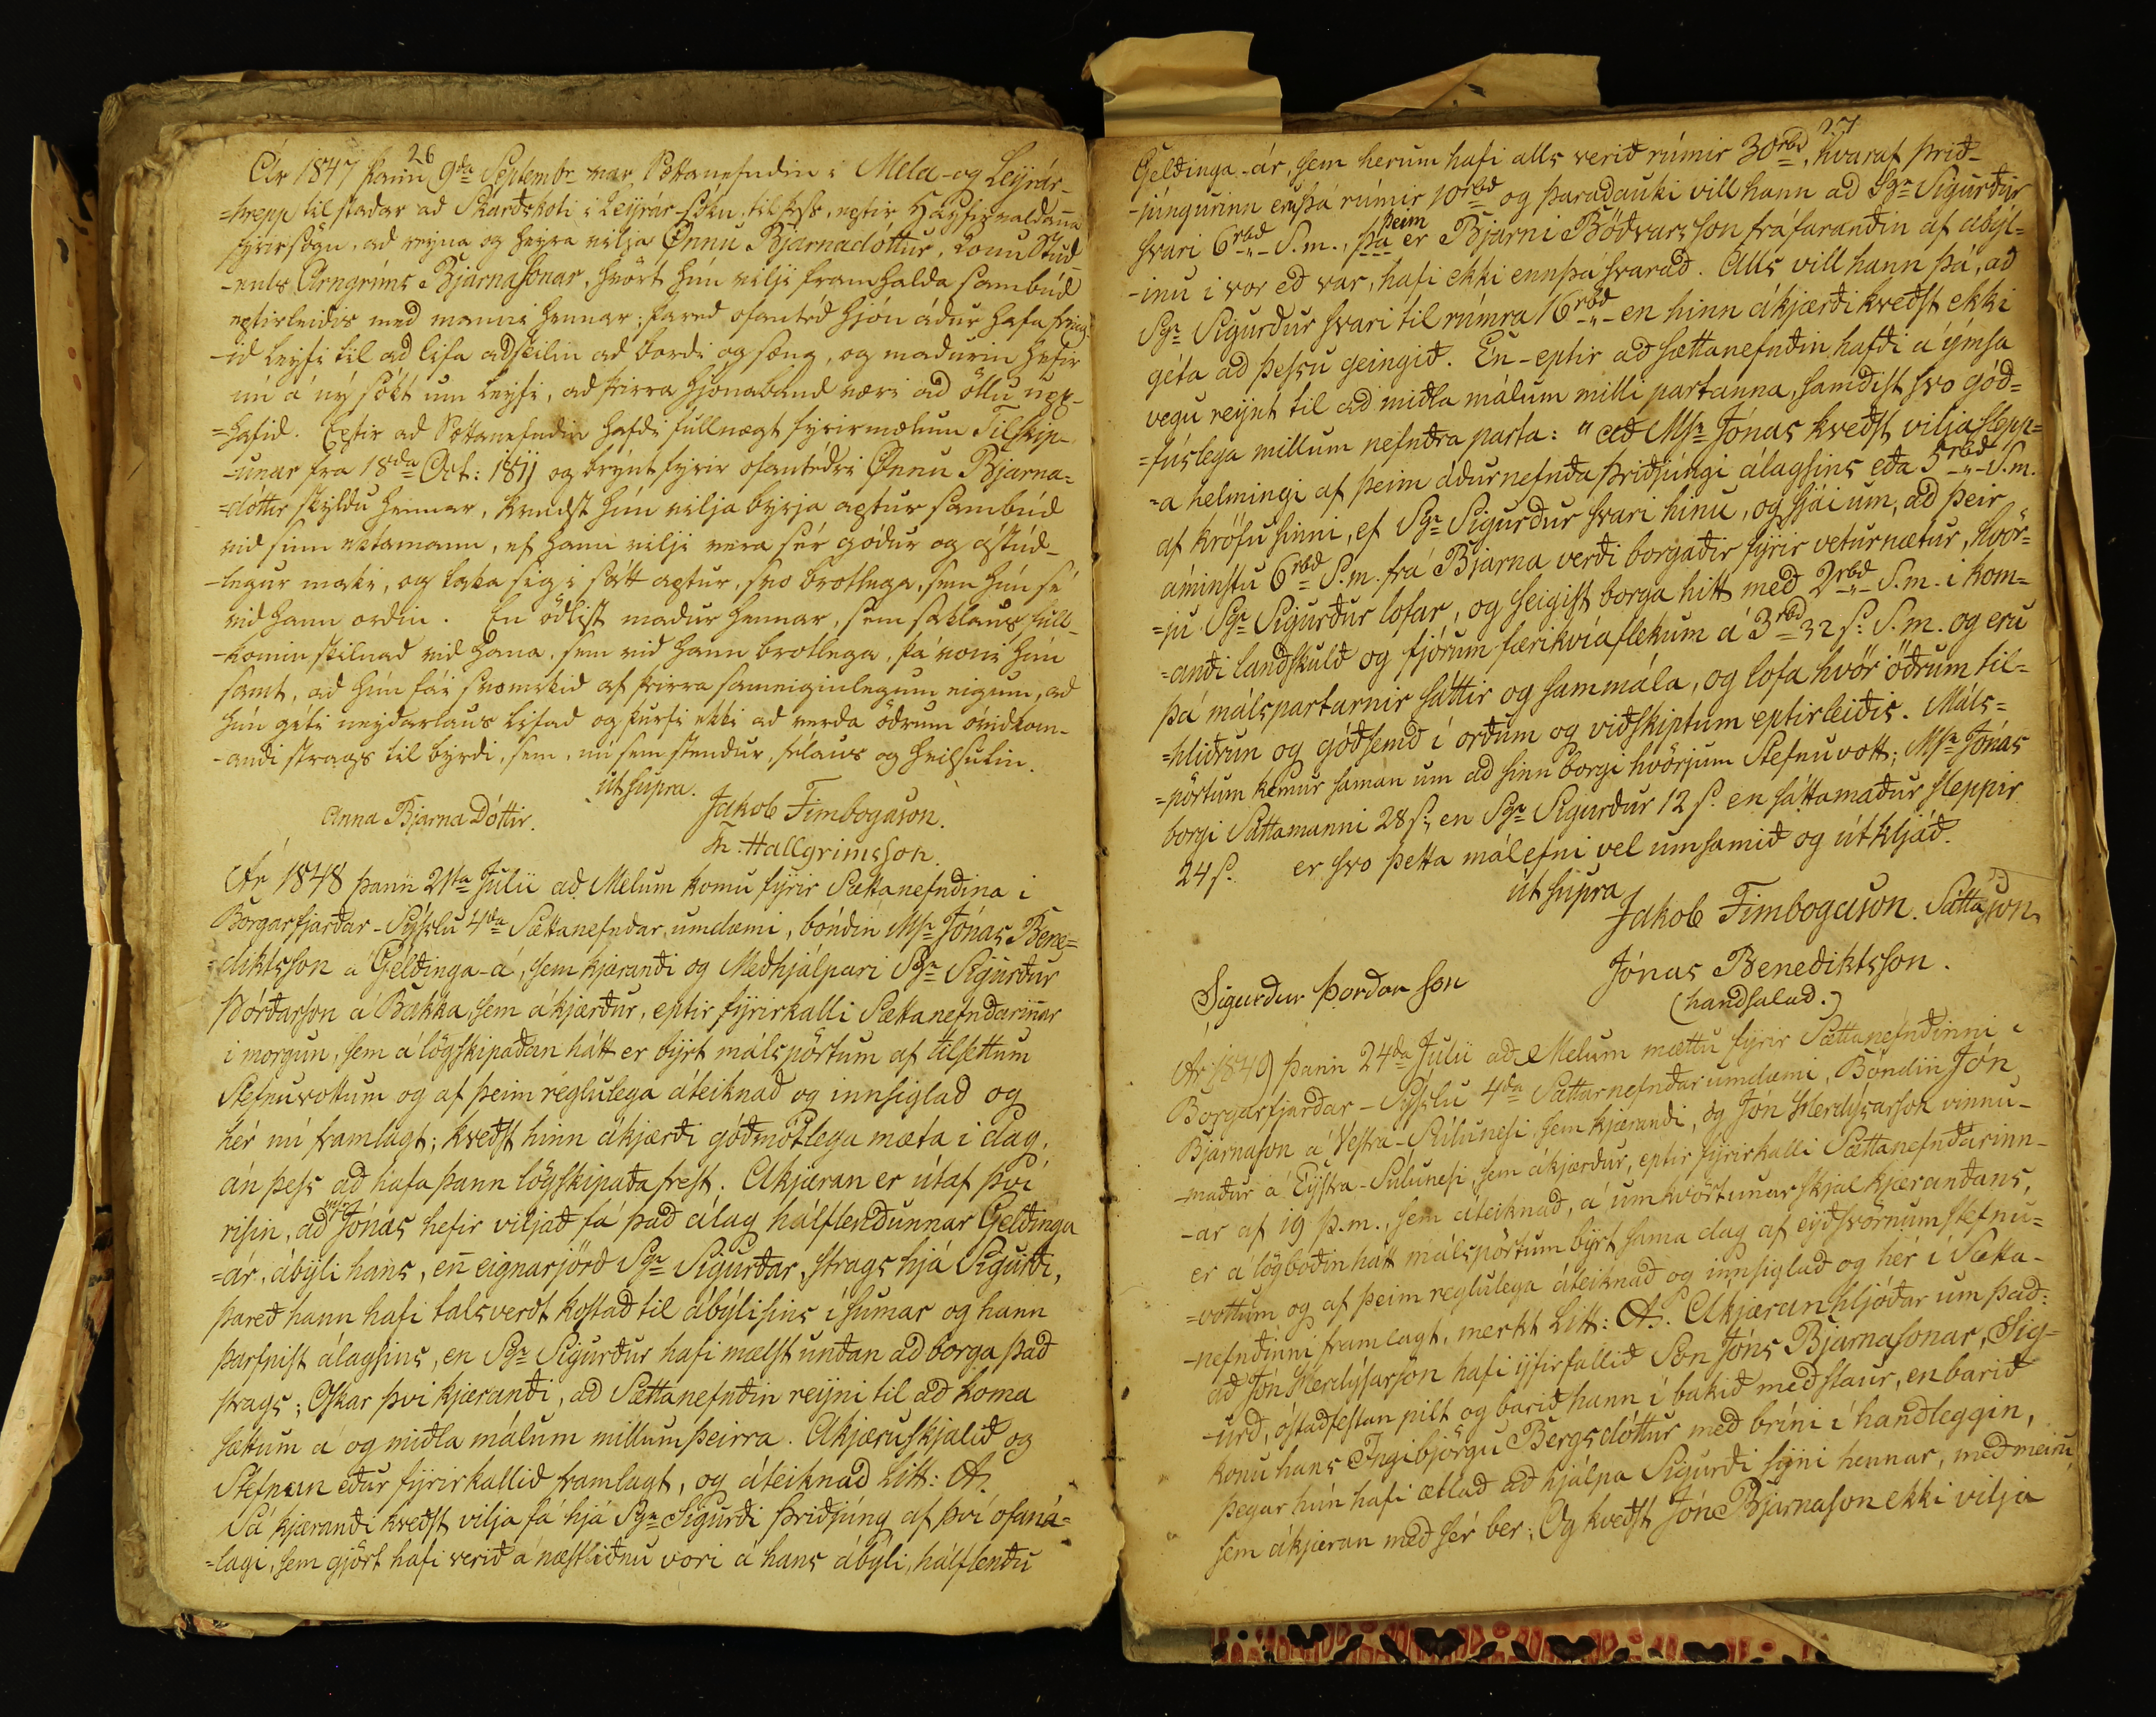 26
Ár 1847 þann 9da Septembr var Sættanefndin í Mela- og Leyrár-
=hrepp til staðar að Skarðskoti í Leyrar-sókn, til þess, eptir Háyfirvaldanna
fyrirsögn, að reyna og heyra vilja Önnu Bjarnadóttur, konu Stúd-
-ents Arngríms Bjarnasonar, hvört hún vilji framhalda sambúð
eptirleiðis með manni hennar; þareð ofantéð hjón áður hafa feing-
-ið leyfi til að lifa aðskilin að borði og sæng, og maðurin hefir
nú á ný sókt um leyfi, að þeirra hjónaband væri að öllu upp-
=hafið. Eptir að Sættanefndin hafði fullnægt fyrirmælum Tilskip-
-unar frá 18da Oct: 1811 og brýnt fyrir ofantéðri Önnu Bjarna-
=dóttir skyldu hennar, kvaðst hún vilja byrja aptur sambúð
við sinn ektamann, ef hann vilji vera sér góður og ástúð-
-legur maki, og taka sig í sátt aptur, svo brotlega, sem hún sé
við hann orðin. En öðlist maður hennar, sem saklaus, full-
-komin skilnað við hana, sem við hann brotlega, þá voni hún
samt, að hún fái svo mikið af þeirra sameiginlegum eigum, að
hún géti neyðarlaus lifað og þurfi ekki að verða öðrum óviðkom-
-andi strags til byrði, sem, nú sem stendur, félaus og heilsulin.
ut supra.
Anna Bjarna Dóttir. Jakob Finnbogason.
Th. Hallgrimsson.
Ár 1848 þann 21ta Julii að Melum komu fýrir Sættanefndina í
Borgarfjarðar-Sýslu 4da Sættanefndar umdæmi, bóndin Msr Jónas Bene=
=diktsson á Geldinga-á, sem kjærandi og Meðhjálpari Sgr Sigurður
Þórðarson á Bakka, sem ákjærður, eptir fýrirkalli Sættanefndarinnar
í morgun, sem á lögskipaðan hátt er býrt málspörtum af tilsettum
Stefnuvottum og af þeim réglulega áteiknað og innsiglað og
hér nú framlagt; kveðst hinn ákjærði góðmótlega mæta í dag,
án þess að hafa þann lögskipaða frest. Ákjæran er útaf því
risin, að Msr Jónas hefir viljað fá það álag hálflendunnar Geldinga
=ár, ábýli hans, en eignarjörð Sgr Sigurðar, strags hjá Sigurði,
þareð hann hafi talsverdt kostað til ábýlisins í sumar og hann
þarfnist álagsins, en Sgr Sigurður hafi mælst undan að borga það
strags; Óskar því kjærandi, að Sættanefndin reyni til að koma
sættum á og miðla málum millum þeirra. Ákjæruskjalið og
Stefnan eður fýrirkallið framlagt, og áteiknað Litt: A.
Sá kjærandi kveðst vilja fá hjá Sgr Sigurði þriðjúng af því ofaná=
=lagi, sem gjört hafi verið á næstliðnu vori á hans ábýli, hálflendu
27
Geldinga-ár, sem herum hafi alls verið rúmir 30rbd, hvaraf þrið-
-júngurinn ennþá rúmir 10rbd og þaraðauki vill hann að Sgr Sigurður
svari 6rbd S.m., þá þeim er Bjarni Böðvarsson fráfarandin af ábýl=
-inu í vor eð var, hafi ekki ennþá svarað. Alls vill hann þá, að
Sgr Sigurður svari til rúmra 16rbd en hinn ákjærði kveðst ekki
géta að þessu geingið. En eptir að sættanefndin hafði á ýmsa
vegu reynt til að miðla málum milli partanna, samdist svo góð=
=fúslega millum nefndra parta: "að Msr Jónas kveðst vilja slepp=
=a helmingi af þeim áðurnefnda þriðjúngi álagsins eða 5rbd S.m.
af kröfu sinni, ef Sgr Sigurður svari hinu, og sjái um, að þeir
áminstu 6rbd S.m. frá Bjarna verði borgaðir fýrir veturnætur, hvör=
=ju Sgr Sigurður lofar, og seigist borga hitt með 2rbd S.m. í kom=
=andi landskuld og fjórum færikvíaflekum á 3rbd 32 s: S.m. og eru
þá málspartarnir sáttir og sammála, og lofa hvör öðrum til=
=hliðrun og góðsemd í orðum og viðskiptum eptirleiðis. Máls=
=pörtum kemur saman um að sinn borgi hvörjum Stefnuvott; Msr Jónas
borgi Sáttamanni 28 s:, en Sgr Sigurður 12 s. en sáttamaður sleppir
24 s. er svo þetta málefni vel umsamið og útkljáð.
ut supra
Jakob Finnbogason. Sátta
Jónas Benediktsson.
Sigurður Þorðar son (handsalað.)
Ár 1849 þann 24da Julii að Melum mættu fýrir Sættanefndinni í
Borgarfjarðar-Sýslu 4da Sættarnefndar umdæmi, Bóndin Jón
Bjarnason á Vestra-Súlunesi, sem kjærandi, og Jón Herdýsarson vinnu-
-maður á Eystra-Súlunesi, sem ákjærður, eptir fýrirkalli Sættanefndarinn-
-ar af 19 þ.m., sem áteiknað, á umkvörtunar skjal kjærandans,
er á lögboðin hátt málspörtum býrt sama dag af eyðsvörnum stefnu=
=vottum og af þeim reglulega áteiknað og innsiglað og hér í Sætta-
-nefndinni framlagt, merkt Litt: A. Ákjæran hljóðar um það:
að Jón Herdýsarson hafi ýfirfallið Son Jóns Bjarnasonar, Sig-
-urð, óstaðfestan pilt og barið hann í bakið með staur, en barið
konu hans Ingibjörgu Bergsdóttur með bríni í handleggin,
þegar hún hafi ætlað að hjálpa Sigurði sýni hennar, með meiru,
sem ákjæran með sér ber; Og kveðst Jón Bjarnason ekki vilja